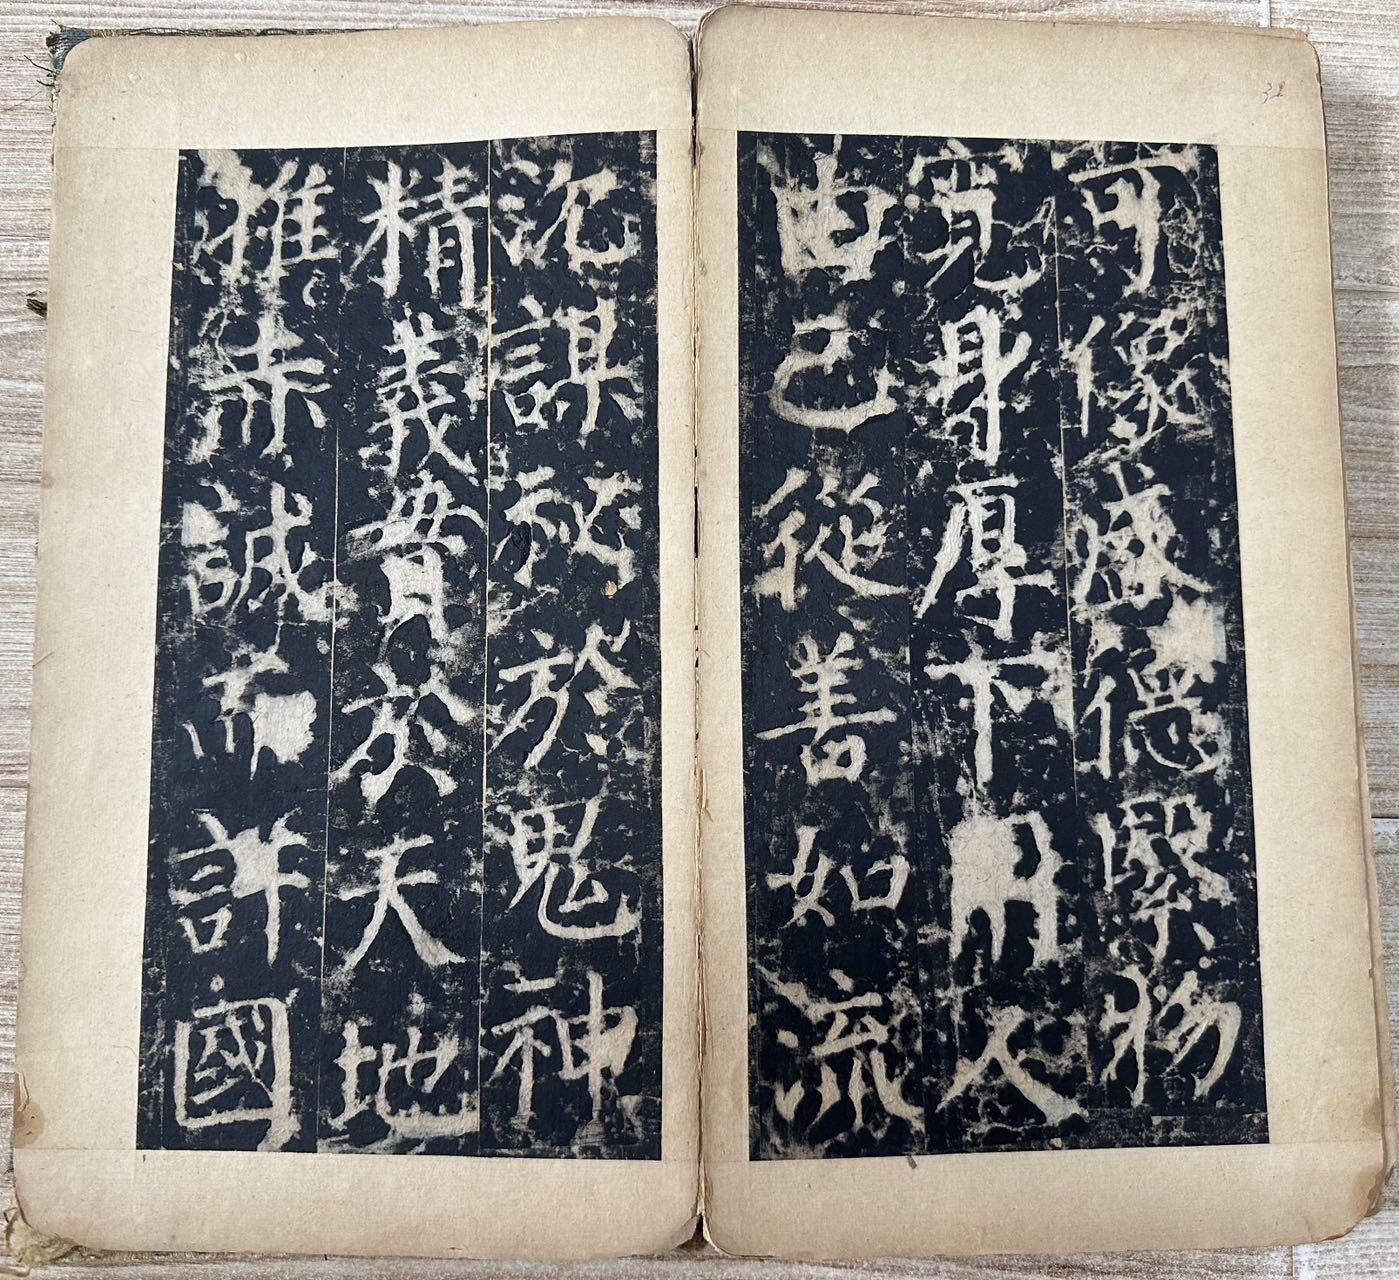 可像盛德緊物
寬身厚下用人
由己從善如流
沉謀祕於鬼神
精義貫於天地
推誠而詳國